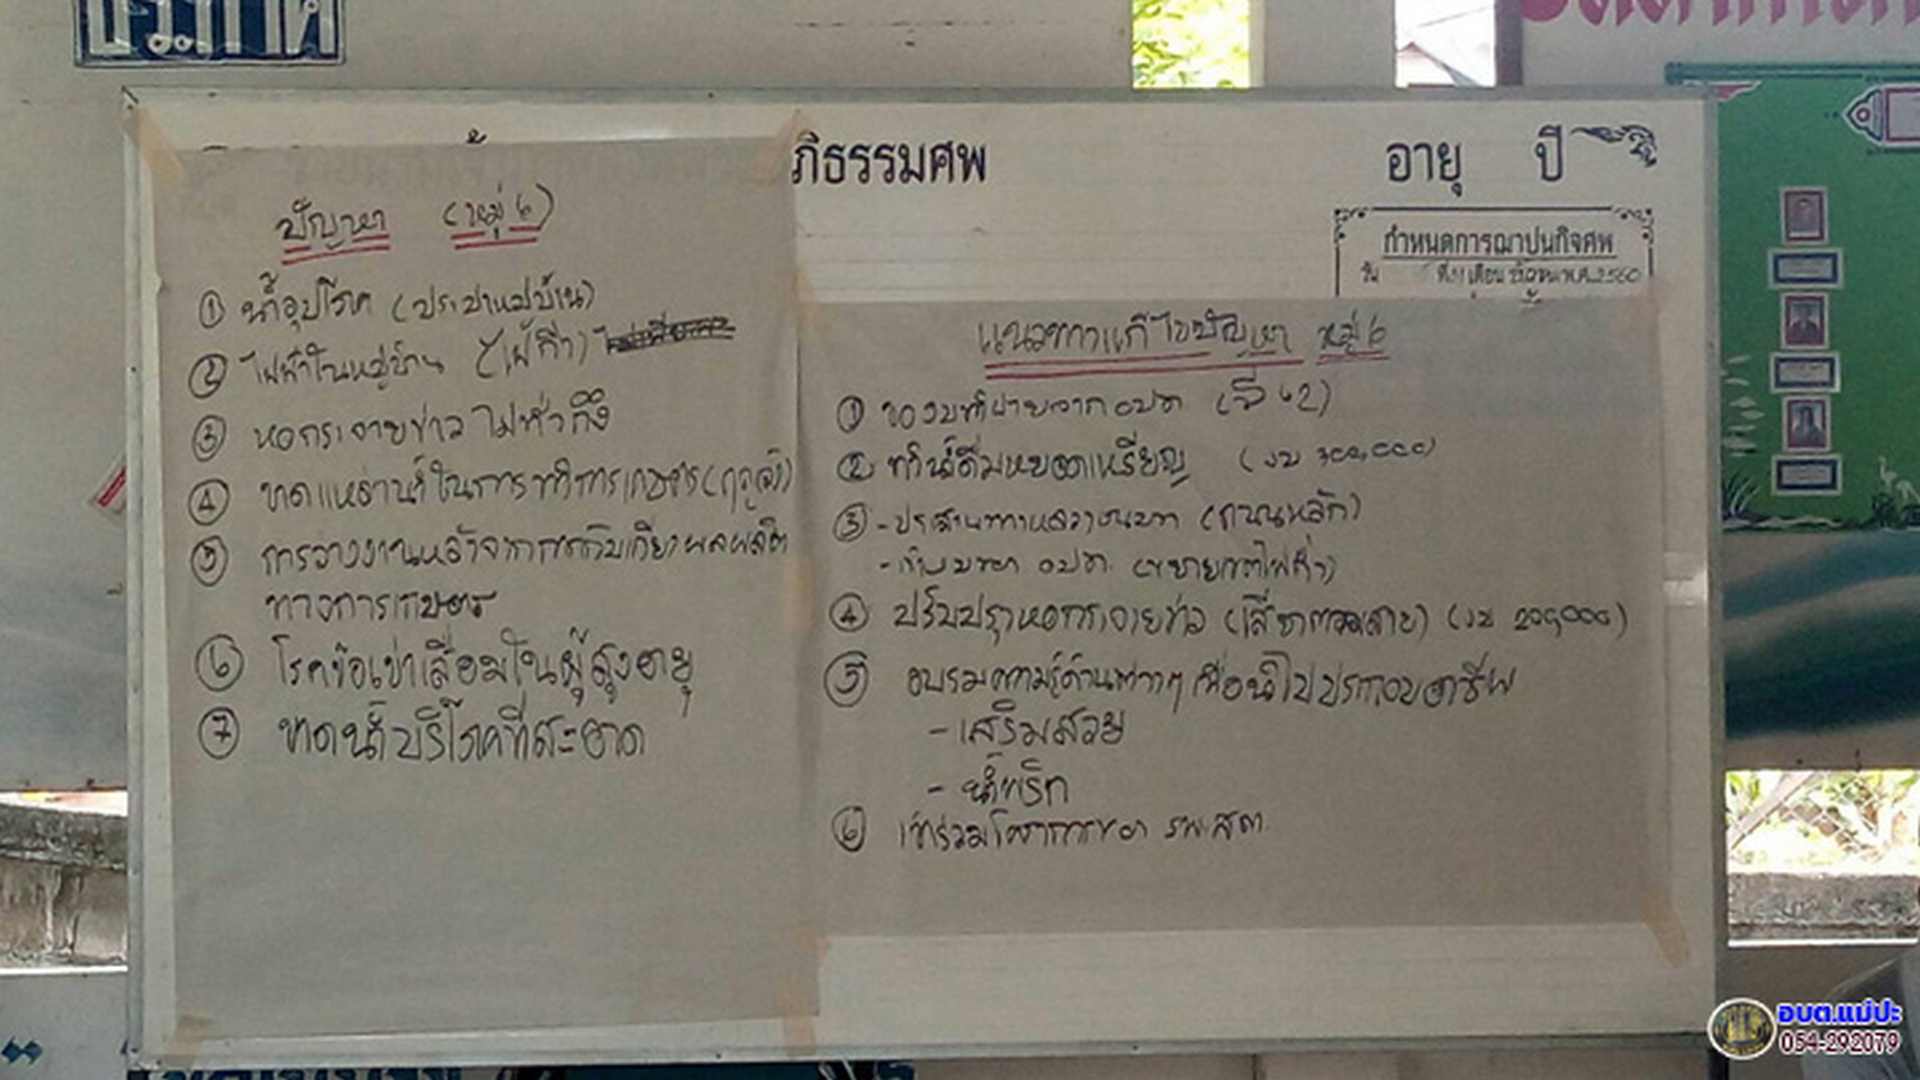 ประกาศ
ภิธรรมศพ
อายุ ปี
กำหนดการฌาปนกิจศพ
วัน ที่ เดือน พ.ศ.2560
ปัญหา (หมู่ 6)
① น้ำอุปโภค (ประปาหมู่บ้าน)
② ไฟฟ้าในหมู่บ้าน (ไฟกิ่ง)
③ หอกระจายข่าวไม่ทั่วถึง
④ ขาดแหล่งน้ำในการทำการเกษตร (ฤดูแล้ง)
⑤ การว่างงานหลังจากการเก็บเกี่ยวผลผลิต
ทางการเกษตร
⑥ โรคข้อเข่าเสื่อมในผู้สูงอายุ
⑦ ขาดน้ำบริโภคที่สะอาด
แนวทางแก้ไขปัญหา หมู่ 6
① ของบทำฝายจาก อปท (ปี 62)
② ทำน้ำดื่มหยอดเหรียญ (งบ 300,000)
③ - ประสานทางหลวงชนบท (ถนนหลัก)
- เก็บงบของ อปท. (ขยายเขตไฟกิ่ง)
④ ปรับปรุงหอกระจายข่าว (เสียงตามสาย) (งบ 200,000)
⑤ อบรมความรู้ด้านต่างๆ เพื่อนำไปประกอบอาชีพ
- เสริมสวย
- น้ำพริก
⑥ เข้าร่วมโครงการของ รพ.สต.
อบต.แม่ปะ
054-292079